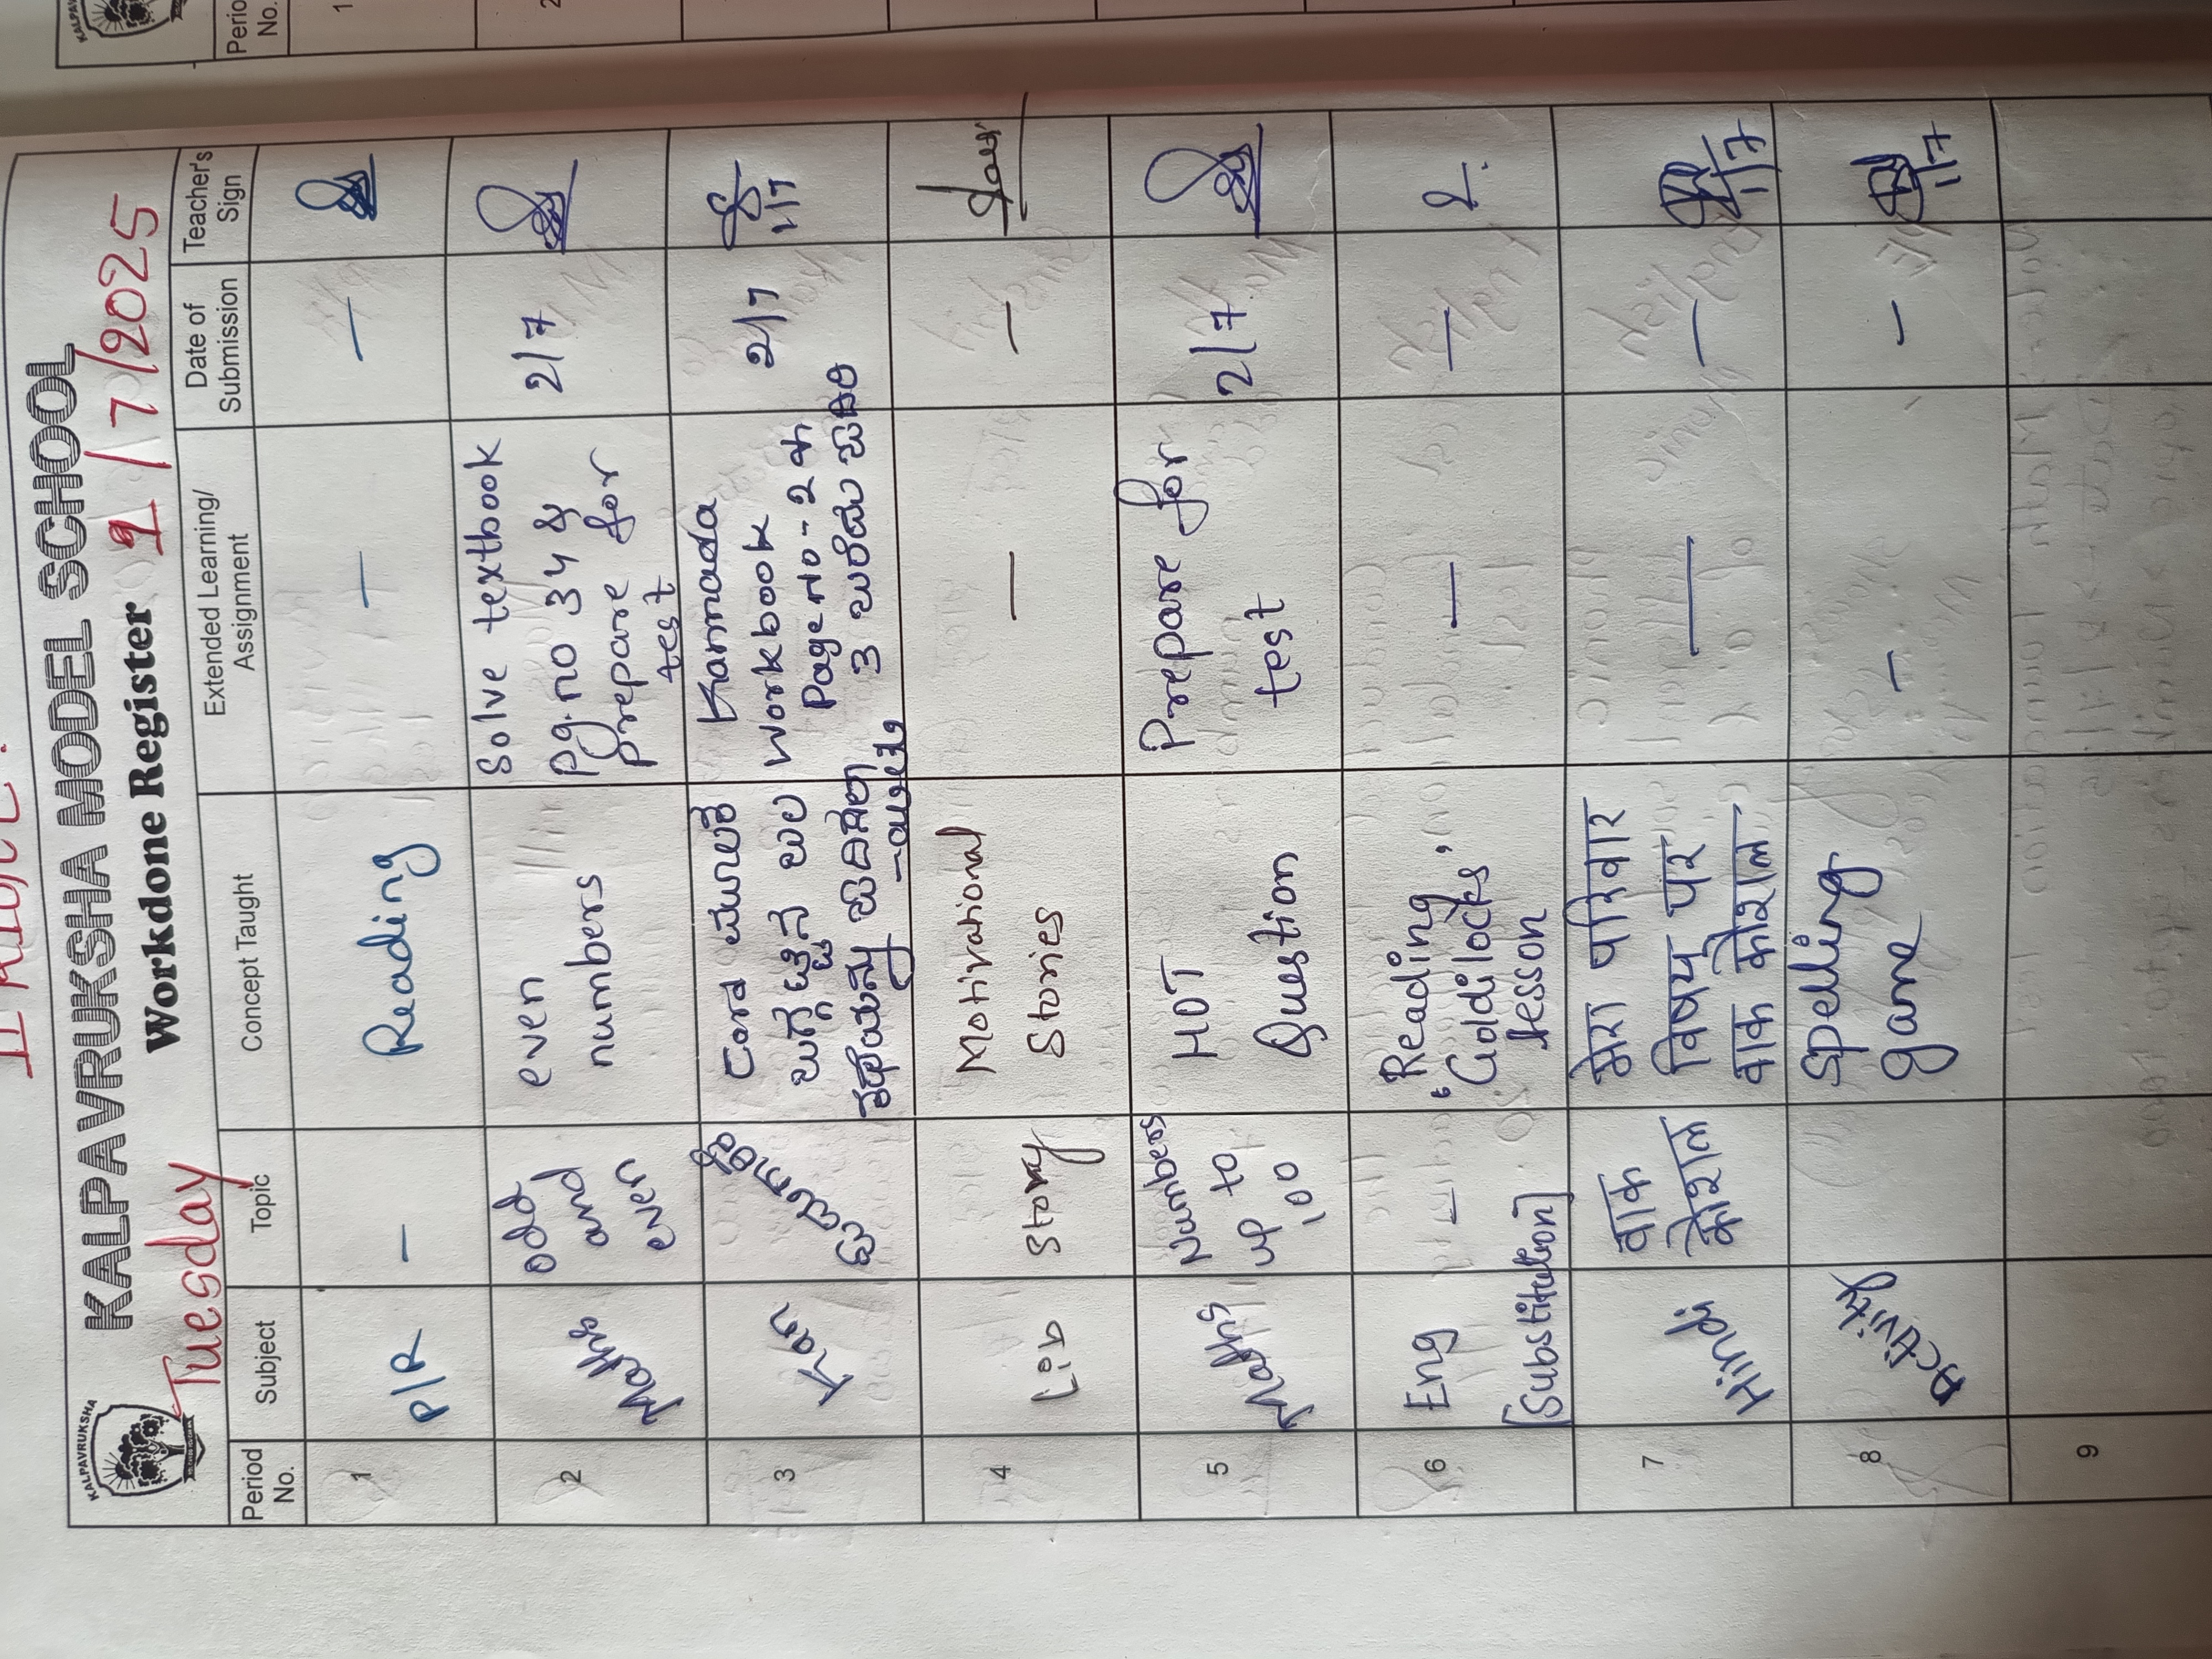 KALPAVRUKSHA
KALPAVRUKSHA MODEL SCHOOL
Tuesday
Workdone Register
1/7/2025
Period No.
Subject
Topic
Concept Taught
Extended Learning/ Assignment
Date of Submission
Teacher's Sign
1
P/R
—
Reading
—
—
2
Maths
odd
and
even
even
numbers
Solve textbook
pg.no 34 &
prepare for
test
2/7
3
Kan
Card ಮೂಲಕ
Kannada
Workbook
Page no-2 &
3
2/7
1/7
4
Lib
Story
Motivational
Stories
—
—
5
Maths
Numbers
up to
100
HOT
Question
Prepare for
test
2/7
6
Eng
[Substitution]
—
Reading
'Goldilocks'
lesson
—
—
7
Hindi
वाक
कोशल
मेरा परिवार
विषय पर
वाक कोशल
—
—
1/7
8
Activity
Spelling
game
—
—
1/7
9